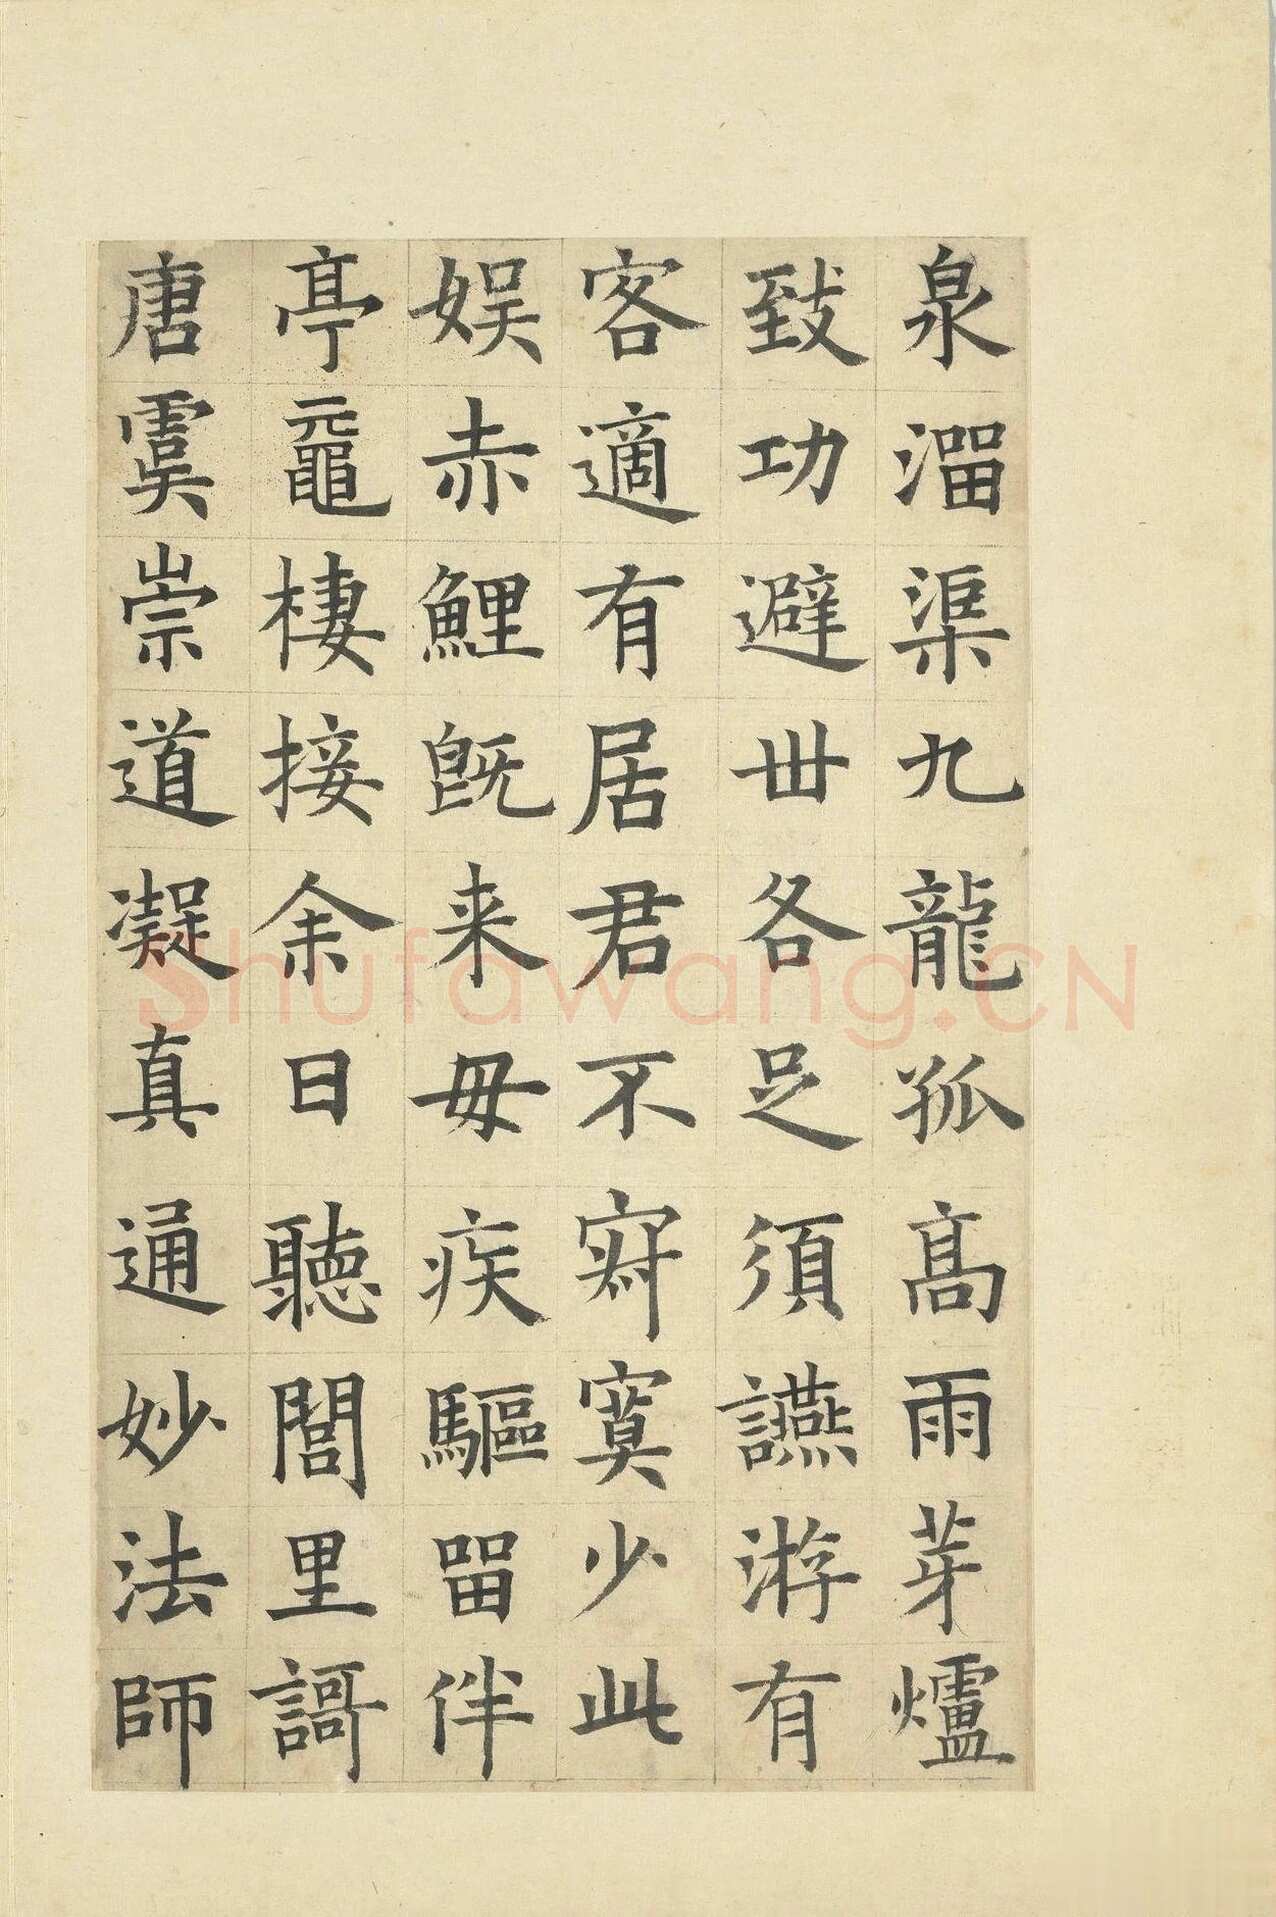 泉溜渠九龍孤高雨芽爐
致功避世各足須讌游有
客適有居君不寂寞少此
娱赤鯉既来毋疾驅留伴
亭黿棲接余日聽閭里謌
唐虞崇道凝真通妙法師
Shufawang.CN